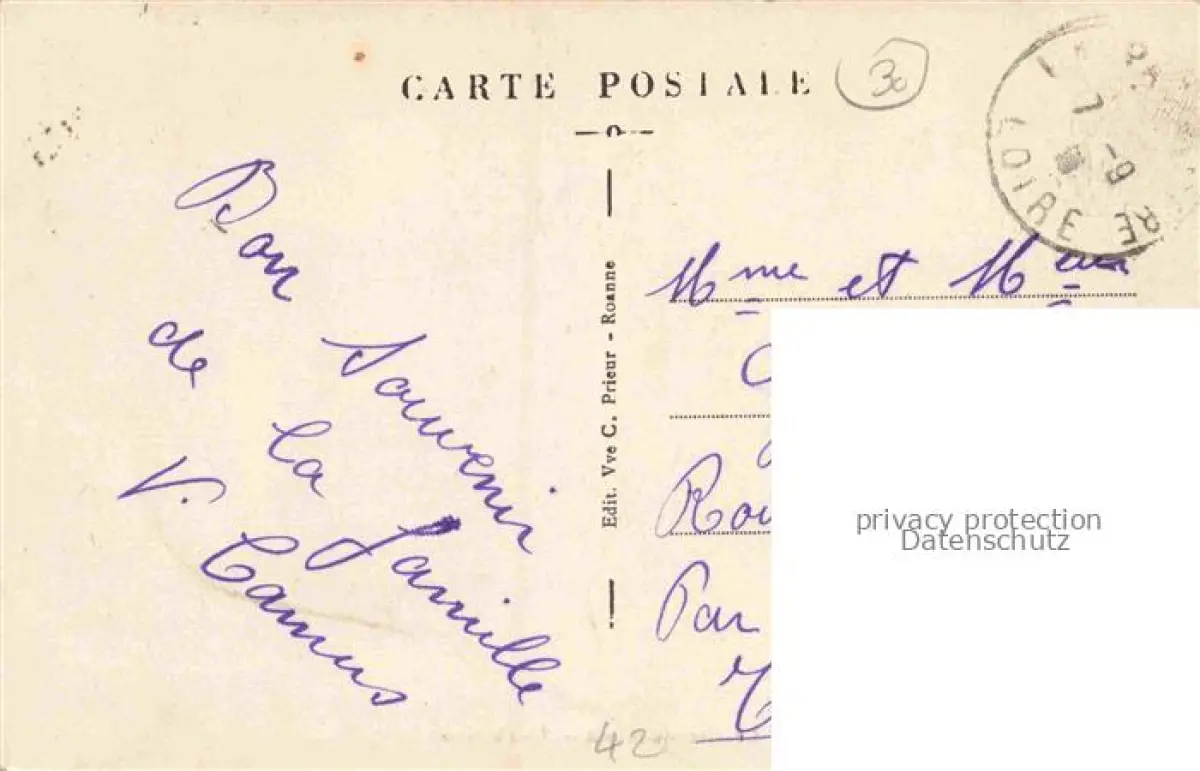 CARTE POSTALE
30
LOIRE
7 -9
Bon Souvenir
de la famille
V. Camus
Edit. Vve C. Prieur - Roanne
Mme et M
Par
privacy protection
Datenschutz
42